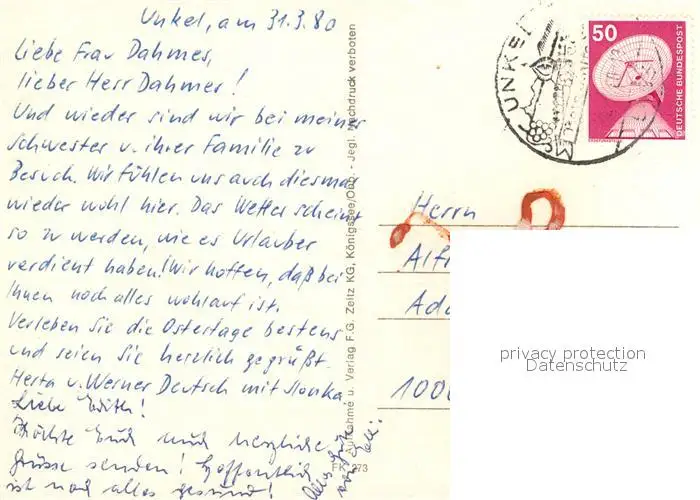 Unkel, am 31.3.80
Liebe Frau Dahmer,
lieber Herr Dahmer!
Und wieder sind wir bei meiner
Schwester u. ihrer Familie zu
Besuch. Wir fühlen uns auch diesmal
wieder wohl hier. Das Wetter scheint
so zu werden, wie es Urlauber
verdient haben! Wir hoffen, daß bei
Ihnen noch alles wohlauf ist.
Verleben Sie die Ostertage bestens
und seien Sie herzlich gegrüßt
Herta u. Werner Deutsch mit
Liebe Edith!
Möchte Euch auch herzliche
Grüsse senden! Hoffentlich
ist noch alles gesund!
Alles Gute
Aufnahme u. Verlag F.G. Zeitz KG, Königssee/Obb. - Jegl. Nachdruck verboten
FK 273
UNKEL
50
DEUTSCHE BUNDESPOST
Herrn
Alf
Ad
1000
privacy protection
Datenschutz